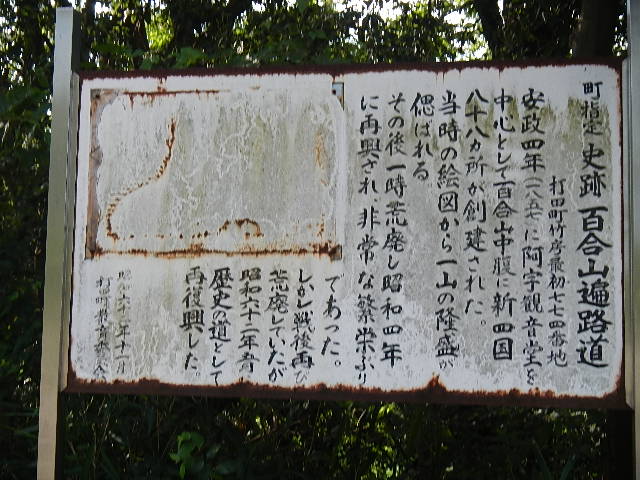 町指定 史跡 百合山遍路道
打田町竹房最初七七四番地
安政四年(一八五七)に阿字観音堂を
中心として百合山中腹に新四国
八十八カ所が創建された。
当時の絵図から一山の隆盛が
偲ばれる
その後一時荒廃し昭和四年
に再興され、非常な繁栄ぶり
であった。
しかし戦後再び
荒廃していたが
昭和六十二年
歴史の道として
再復興した。
昭和六十二年十一月
打田町教育委員会